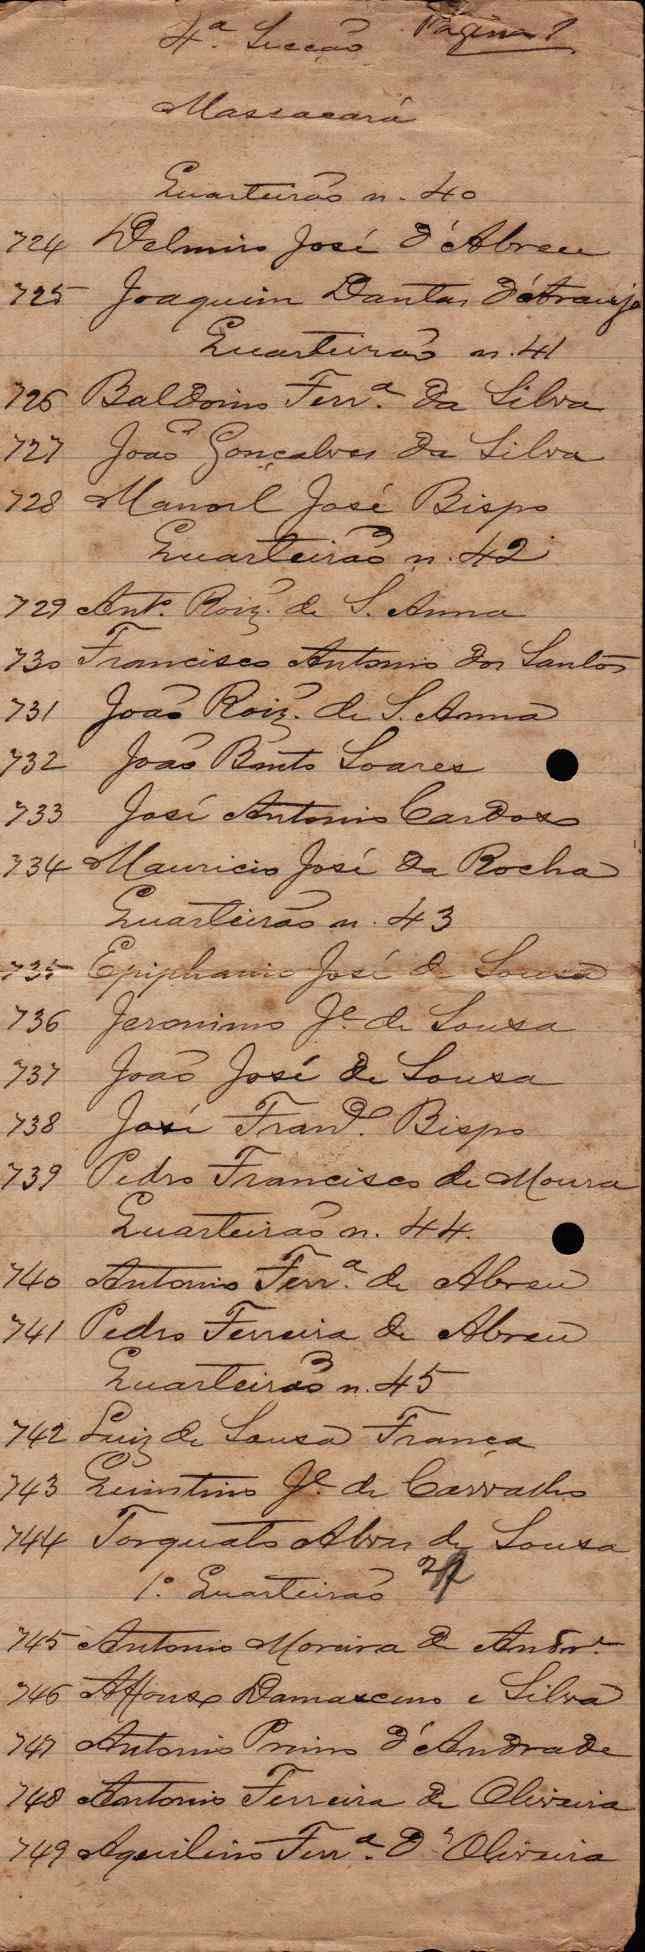 4ª Secção Pagina 1
Massacará
Quarteirão n. 40
724 Delmiro José d'Abreu
725 Joaquim Dantas d'Araujo
Quarteirão n. 41
726 Baldoino Ferrª. da Silva
727 João Gonçalves da Silva
728 Manoel José Bispo
Quarteirão n. 42
729 Antº. Roiz. de S. Anna
730 Francisco Antonio dos Santos
731 João Roiz. de S. Anna
732 João Bento Soares
733 José Antonio Cardoso
734 Mauricio José da Rocha
Quarteirão n. 43
735 Epiphanio José de Sousa
736 Jeronimo Jº. de Sousa
737 João José de Sousa
738 José Francº. Bispo
739 Pedro Francisco de Moura
Quarteirão n. 44.
740 Antonio Ferrª. de Abreu
741 Pedro Ferreira de Abreu
Quarteirão n. 45
742 Luiz de Sousa França
743 Quintino Jº. de Carvalho
744 Torquato Alves de Sousa
1º. Quarteirão
745 Antonio Moreira de Andrº.
746 Affonso Damasceno e Silva
747 Antonio Primo d'Andrade
748 Antonio Ferreira de Oliveira
749 Aquilino Ferrª. d'Oliveira